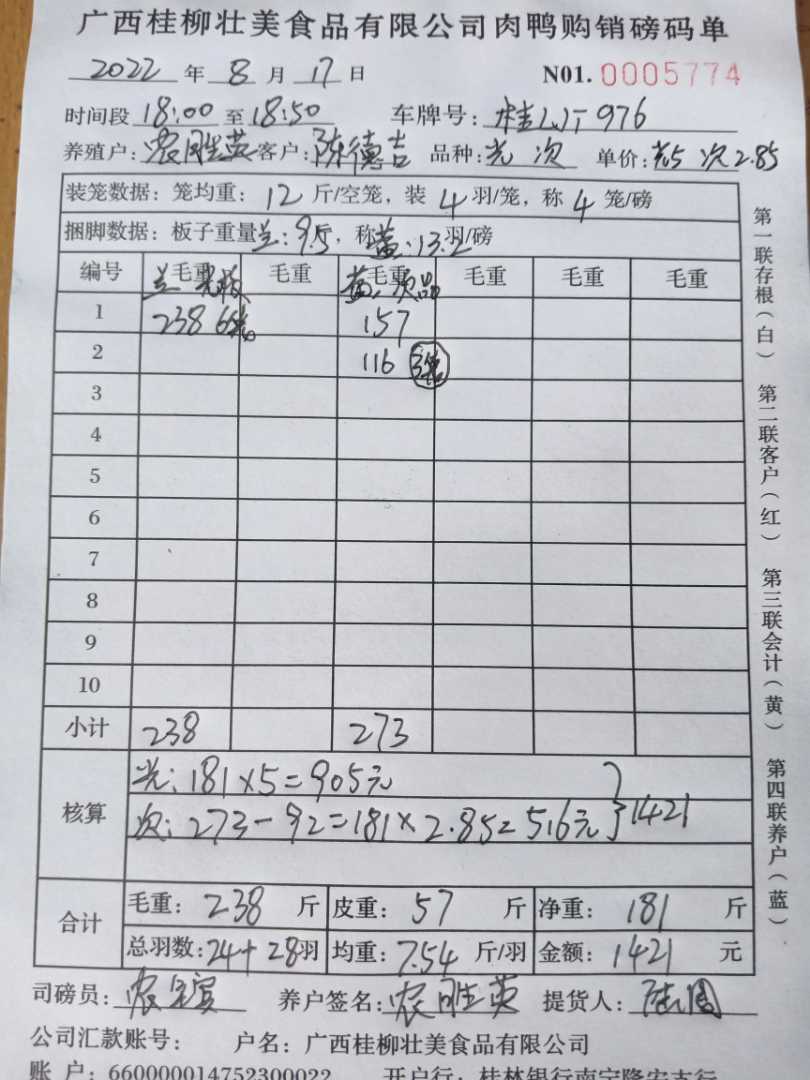 广西桂柳壮美食品有限公司肉鸭购销磅码单
2022 年 8 月 17 日 N01. 0005774
时间段 18:00 至 18:50 车牌号: 976
养殖户: 农胜英 客户: 陈德吉 品种: 光 次 单价: 光5 次2.85
装笼数据: 笼均重: 12 斤/空笼, 装 4 羽/笼, 称 4 笼/磅
捆脚数据: 板子重量 兰: 9.5 , 称 盖: 13.2 羽/磅
编号 毛重 毛重 毛重 毛重 毛重 毛重
兰 次品
1 238 6 157
2 116
3
4
5
6
7
8
9
10
小计 238 273
核算
光: 181×5=905元
次: 273-92=181×2.85=516元 } 1421
合计
毛重: 238 斤 皮重: 57 斤 净重: 181 斤
总羽数: 24+28 羽 均重: 7.54 斤/羽 金额: 1421 元
司磅员: 农 养户签名: 农胜英 提货人:
公司汇款账号: 户名: 广西桂柳壮美食品有限公司
账 户: 660000014752300022 开户行: 桂林银行南宁隆安支行
第一联存根(白)
第二联客户(红)
第三联会计(黄)
第四联养户(蓝)